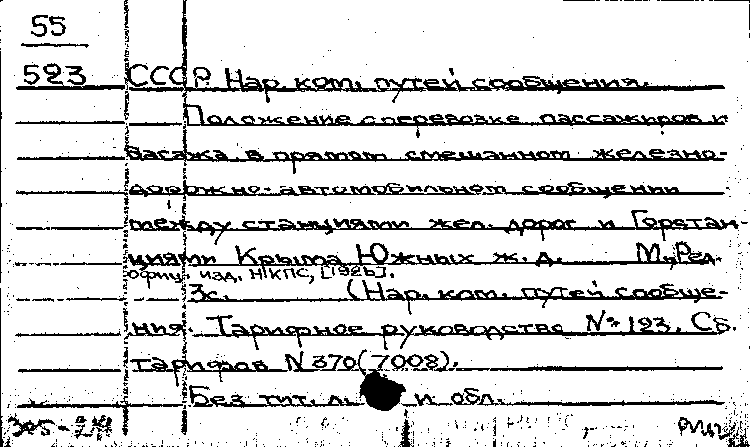 55
523 СССР. Нар. ком. путей сообщения.
Положение о перевозке пассажиров и
багажа в прямом смешанном железно-
дорожно-автомобильном сообщении
между станциями жел. дорог и Горстан-
циями Крыма Южных ж. д. М., Ред.
офиц. изд. НКПС, [1926].
3с. (Нар. ком. путей сообще-
ния. Тарифное руководство № 123. Сб.
тарифов N 370(7008).
Без тит. л. и обл.